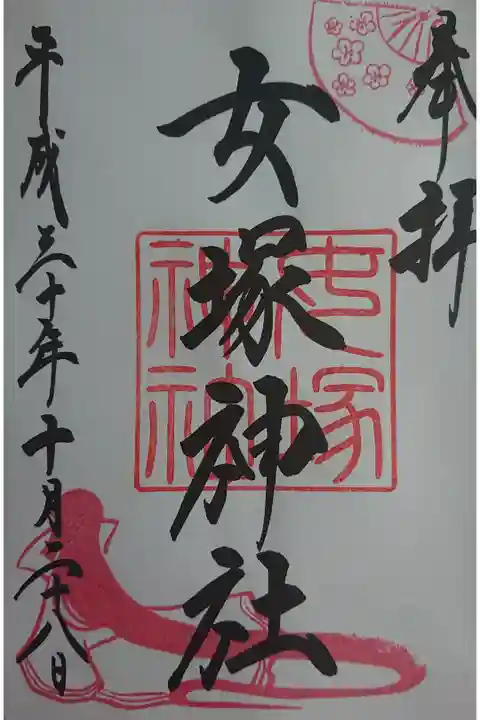 奉拝
女塚神社
平成三十年十月二十八日